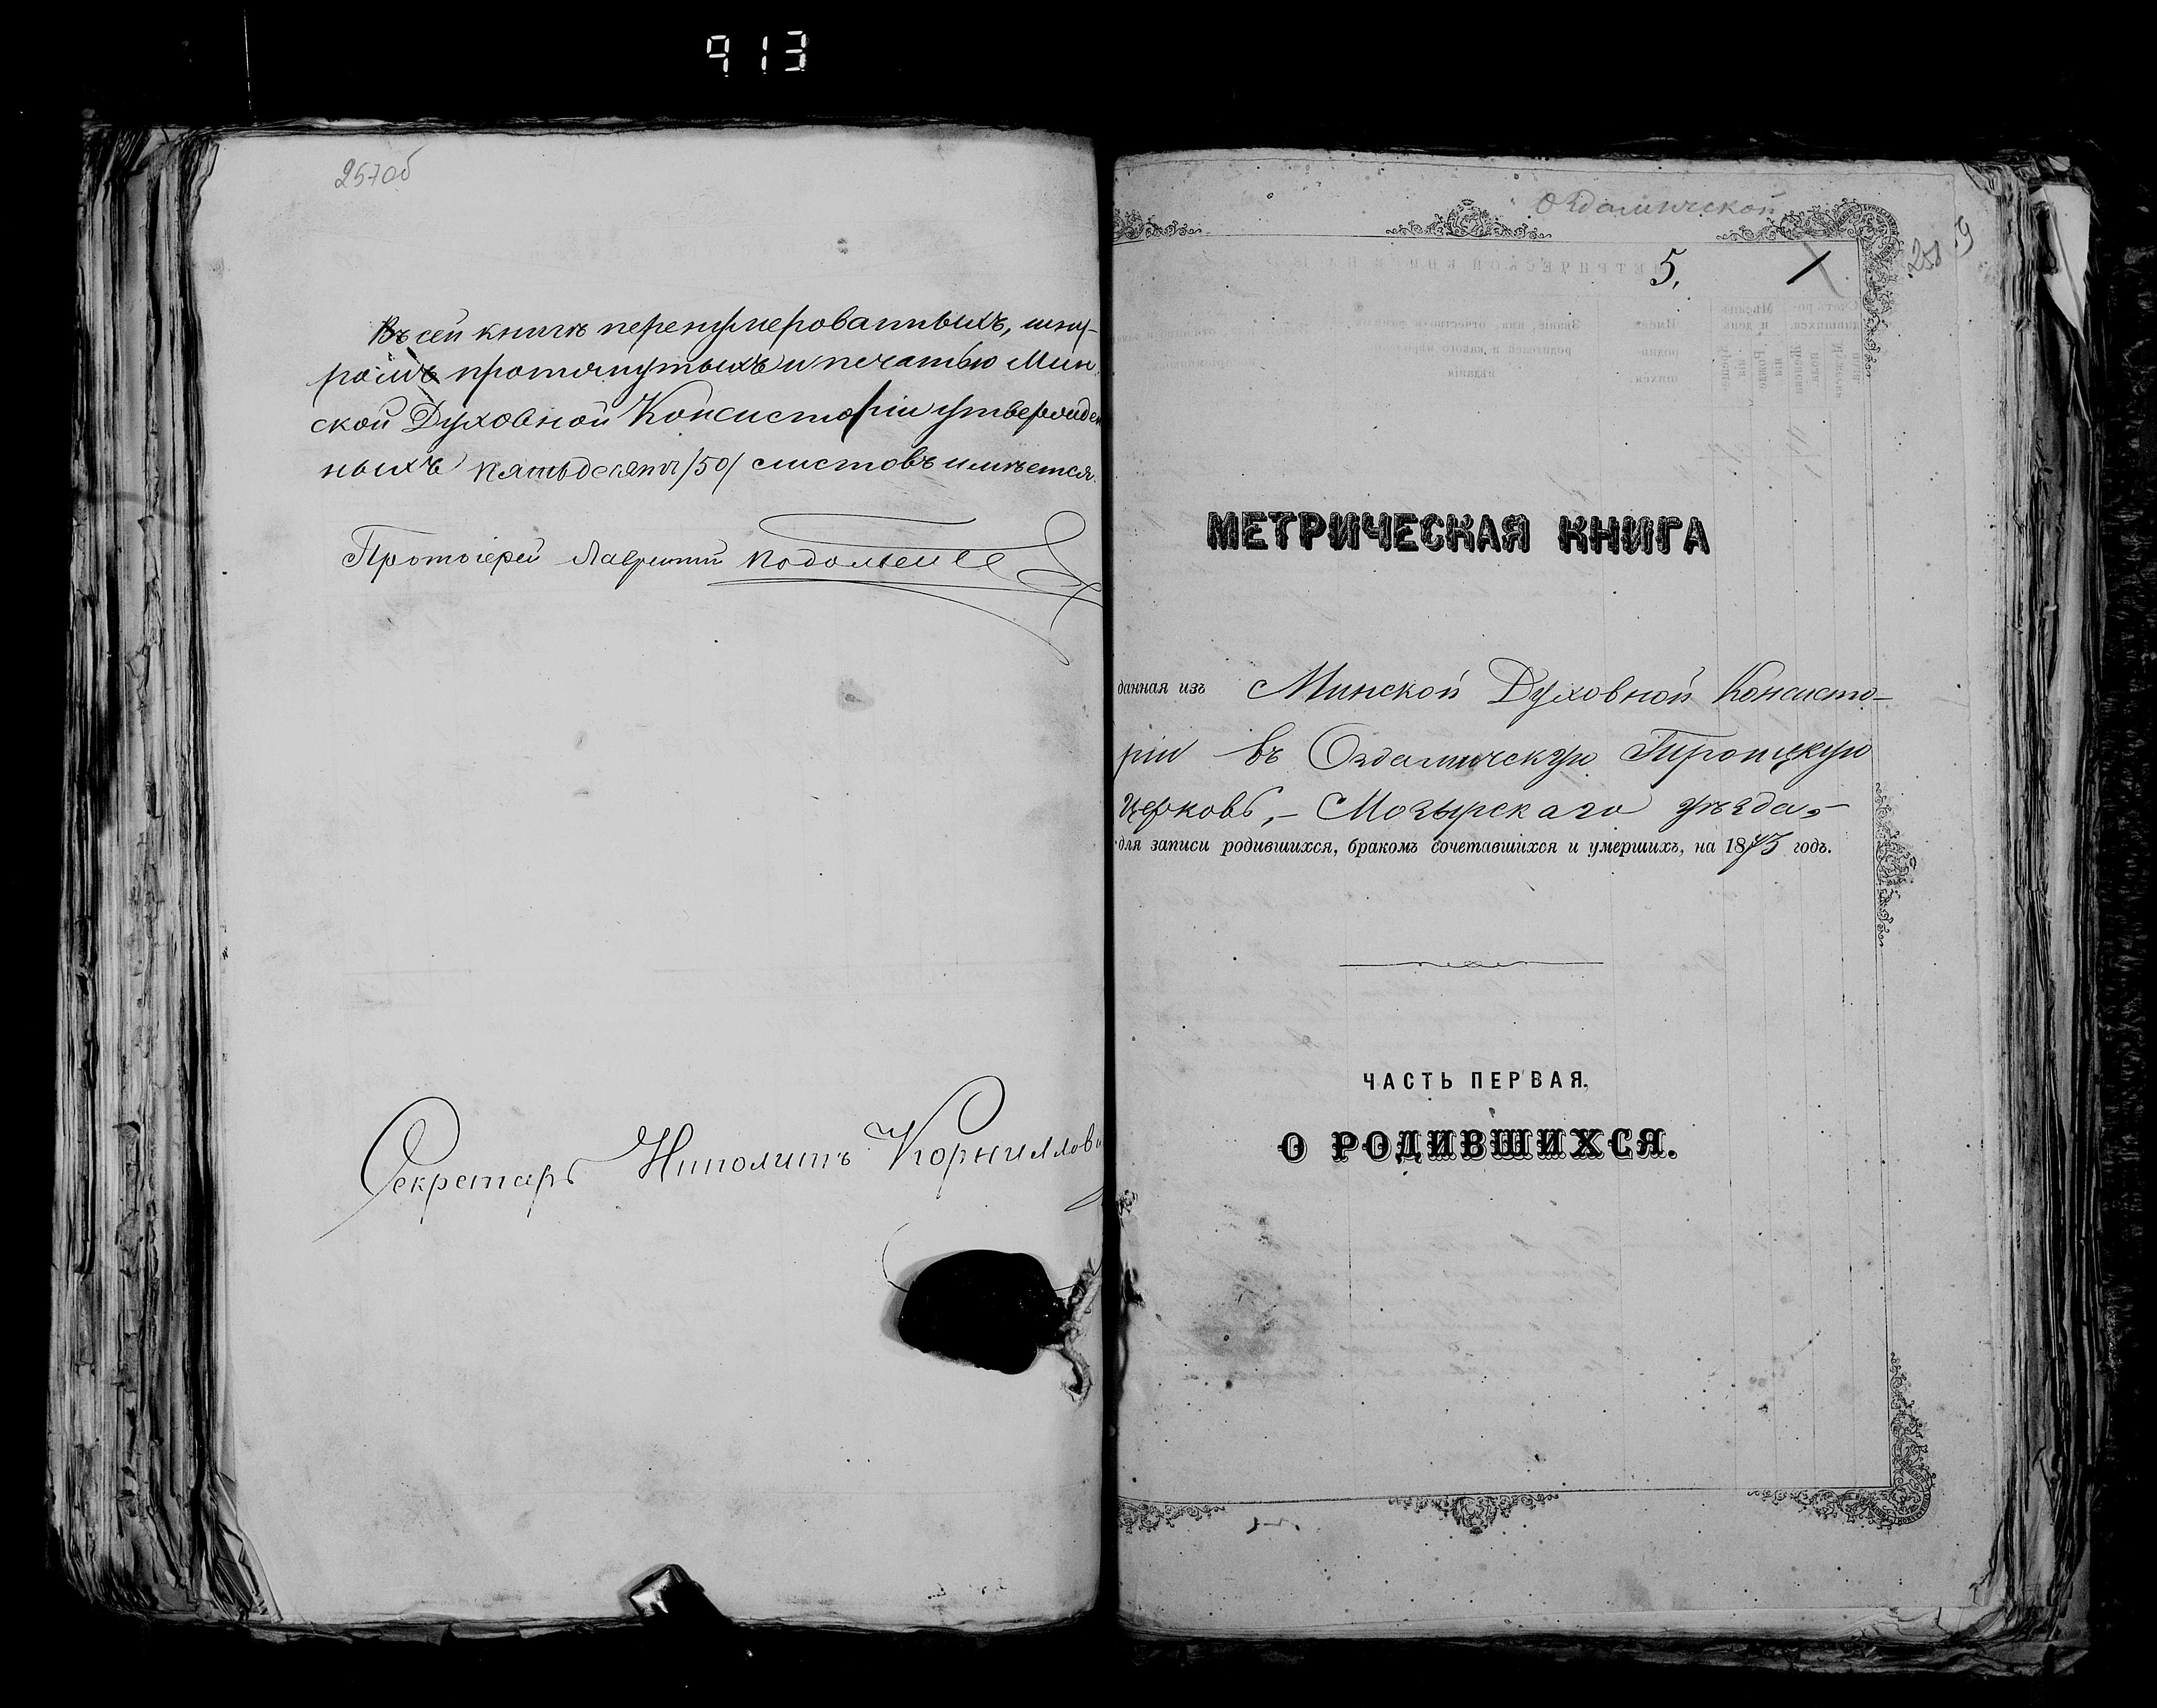 913
257об
Въ сей книгѣ перенумерованныхъ, шну-
ромъ протянутыхъ и печатью Мин
ской Духовной Консисторіи утвержден
ныхъ пятьдесятъ /50/ листовъ имѣется.
Протоіерей Лаврентій
Секретарь Ипполитъ Корниллови
Оздамической
5.
МЕТРИЧЕСКАЯ КНИГА
данная изъ Минской Духовной Консисто-
ріи въ Оздамическую Троицкую
Церковь, – Мозырскаго уѣзда, –
для записи родившихся, бракомъ сочетавшихся и умершихъ, на 1873 годъ.
ЧАСТЬ ПЕРВАЯ.
О РОДИВШИХСЯ.